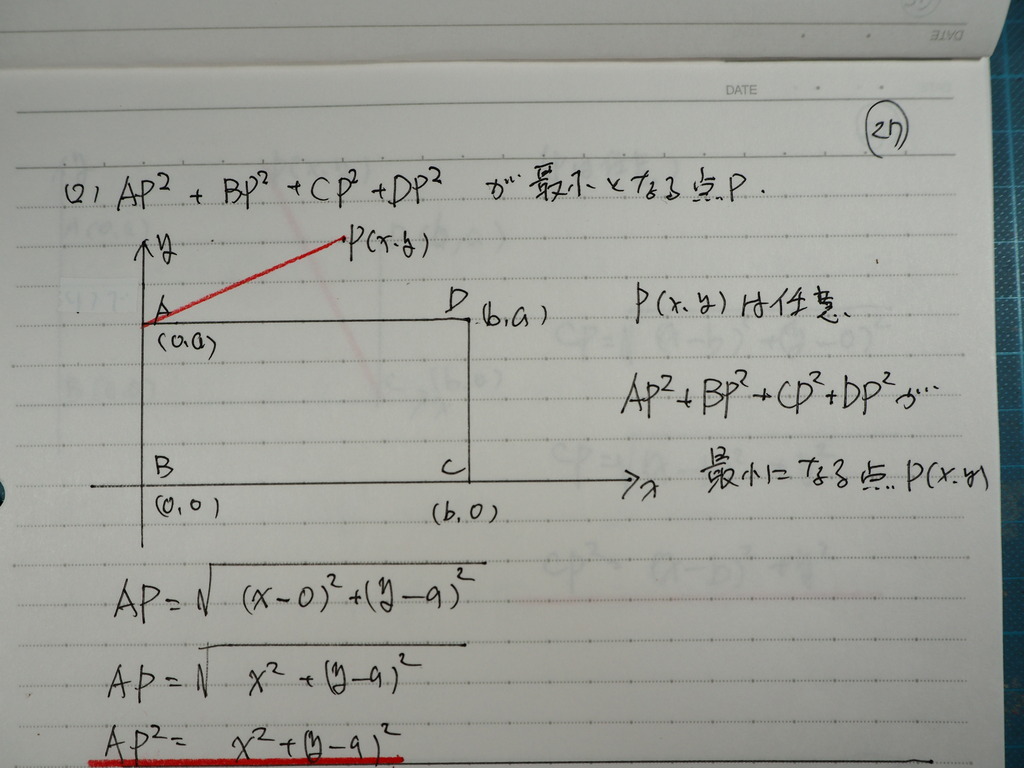 DATE
DATE
27
(2) AP² + BP² + CP² + DP² が 最小となる点P.
y
P(x.y)
A
D
(b,a)
P(x.y)は任意.
(0,a)
AP² + BP² + CP² + DP² が
B
C
x
最小になる点 P(x.y)
(0,0)
(b,0)
AP = √(x-0)² + (y-a)²
AP = √x² + (y-a)²
AP² = x² + (y-a)²